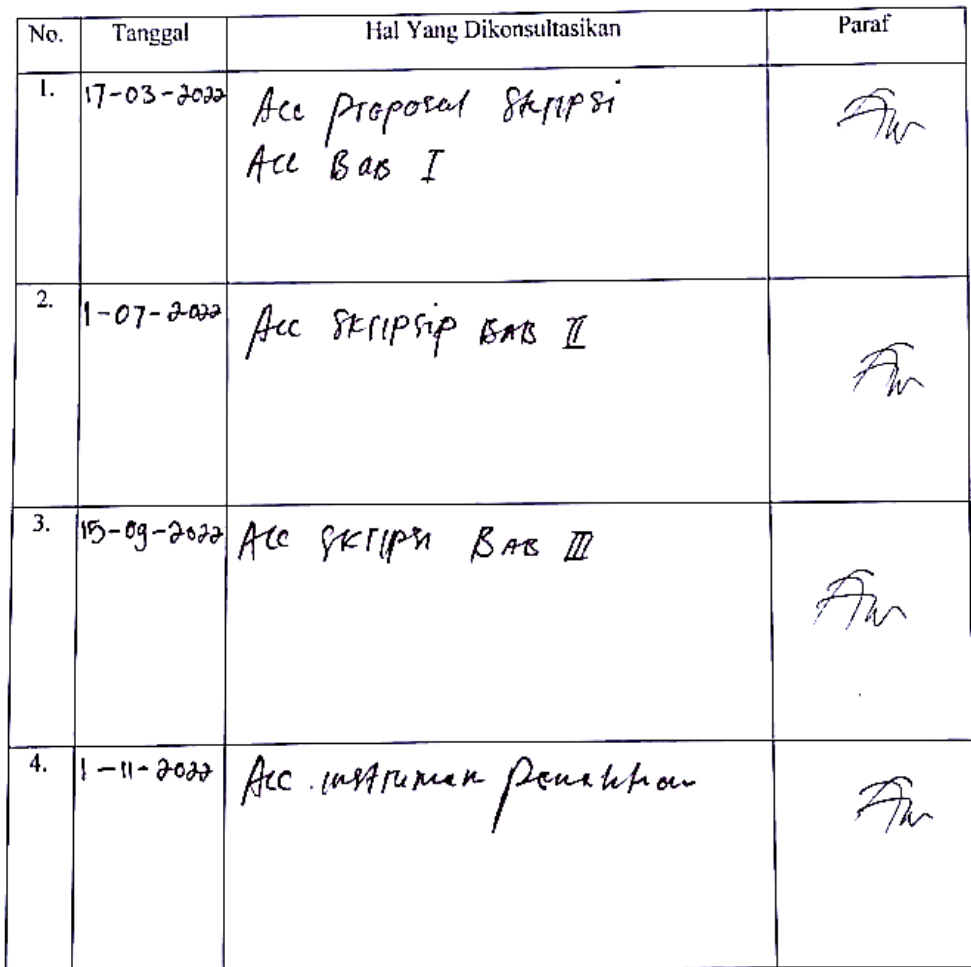 No. Tanggal Hal Yang Dikonsultasikan Paraf
1. 17-03-2022 Acc Proposal Skripsi
Acc Bab I
2. 1-07-2022 Acc Skripsip BAB II
3. 15-09-2022 Acc Skripsi BAB III
4. 1-11-2022 Acc instrumen penelitian